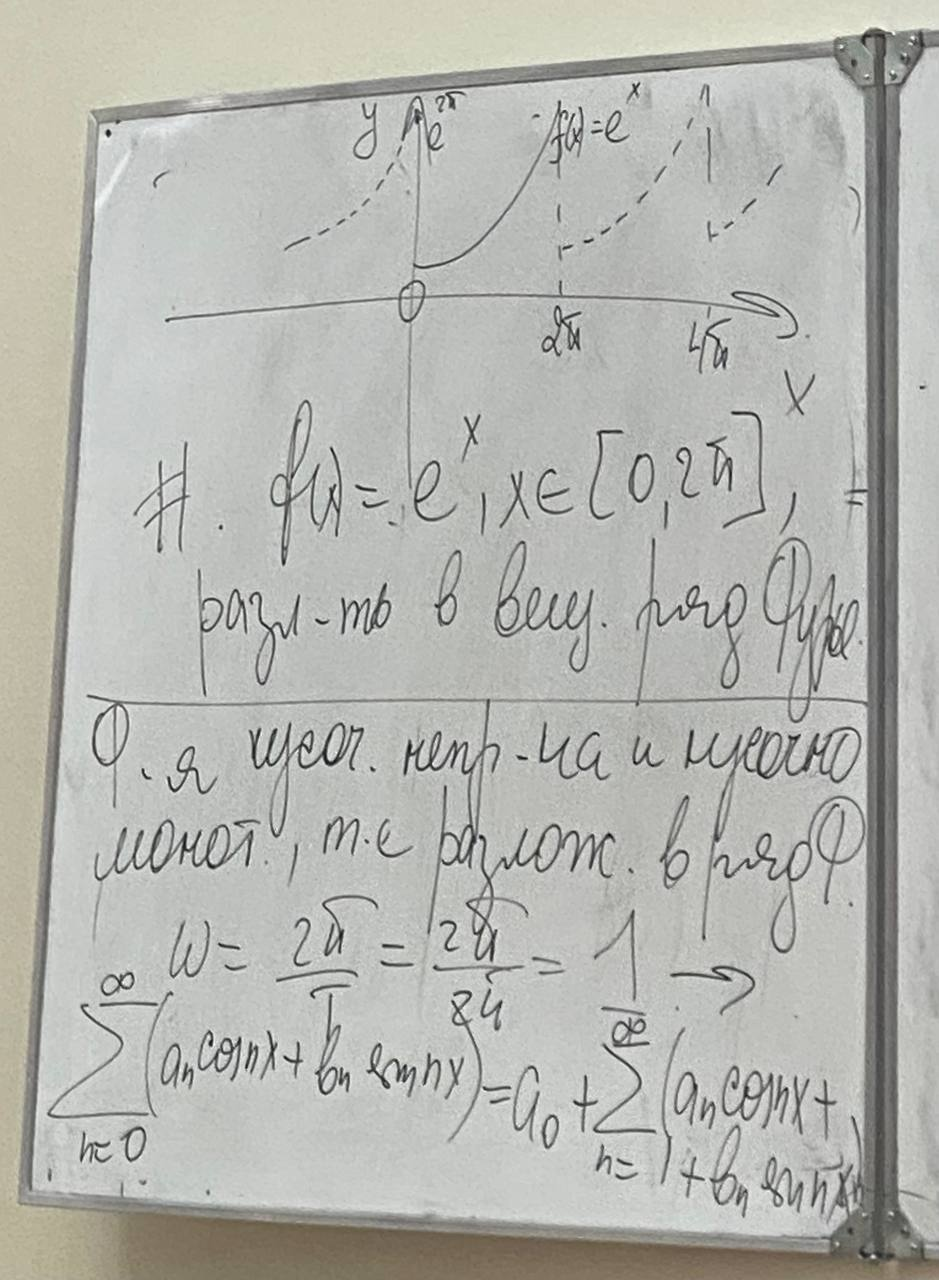 y e^{2π} f(x)=e^x
0 2π 4π
x
#. f(x)=e^x, x∈[0,2π], =
разл-ть в вещ. ряд Фурье.
Ф.-я кусоч. непр-на и кусочно
монот., т.е разлож. в ряд Ф.
ω = 2π/T = 2π/2π = 1 →
∑_{n=0}^{∞} (a_n cosnx + b_n sinnx) = a_0 + ∑_{n=1}^{∞} (a_n cosnx +
+ b_n sin nx)